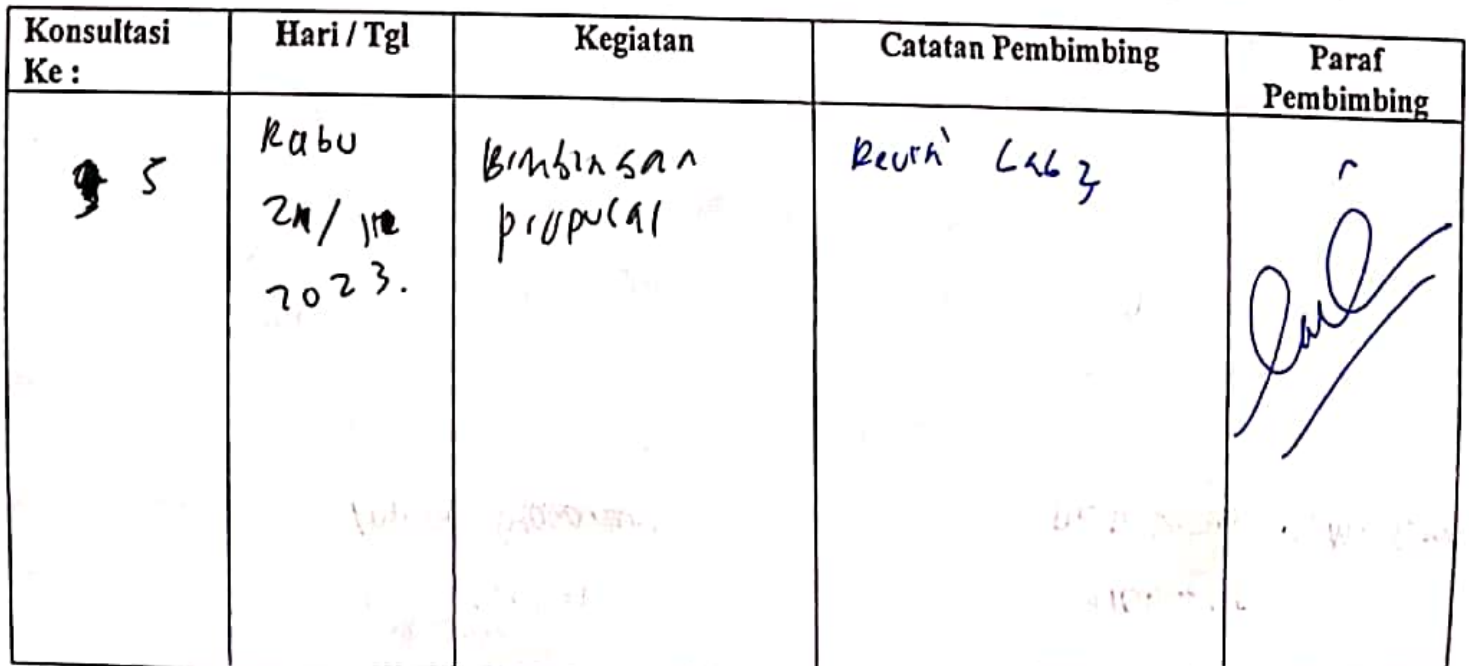 Konsultasi Ke :
Hari / Tgl
Kegiatan
Catatan Pembimbing
Paraf Pembimbing
5
Rabu
2023.
Bimbingan
proposal
Revisi